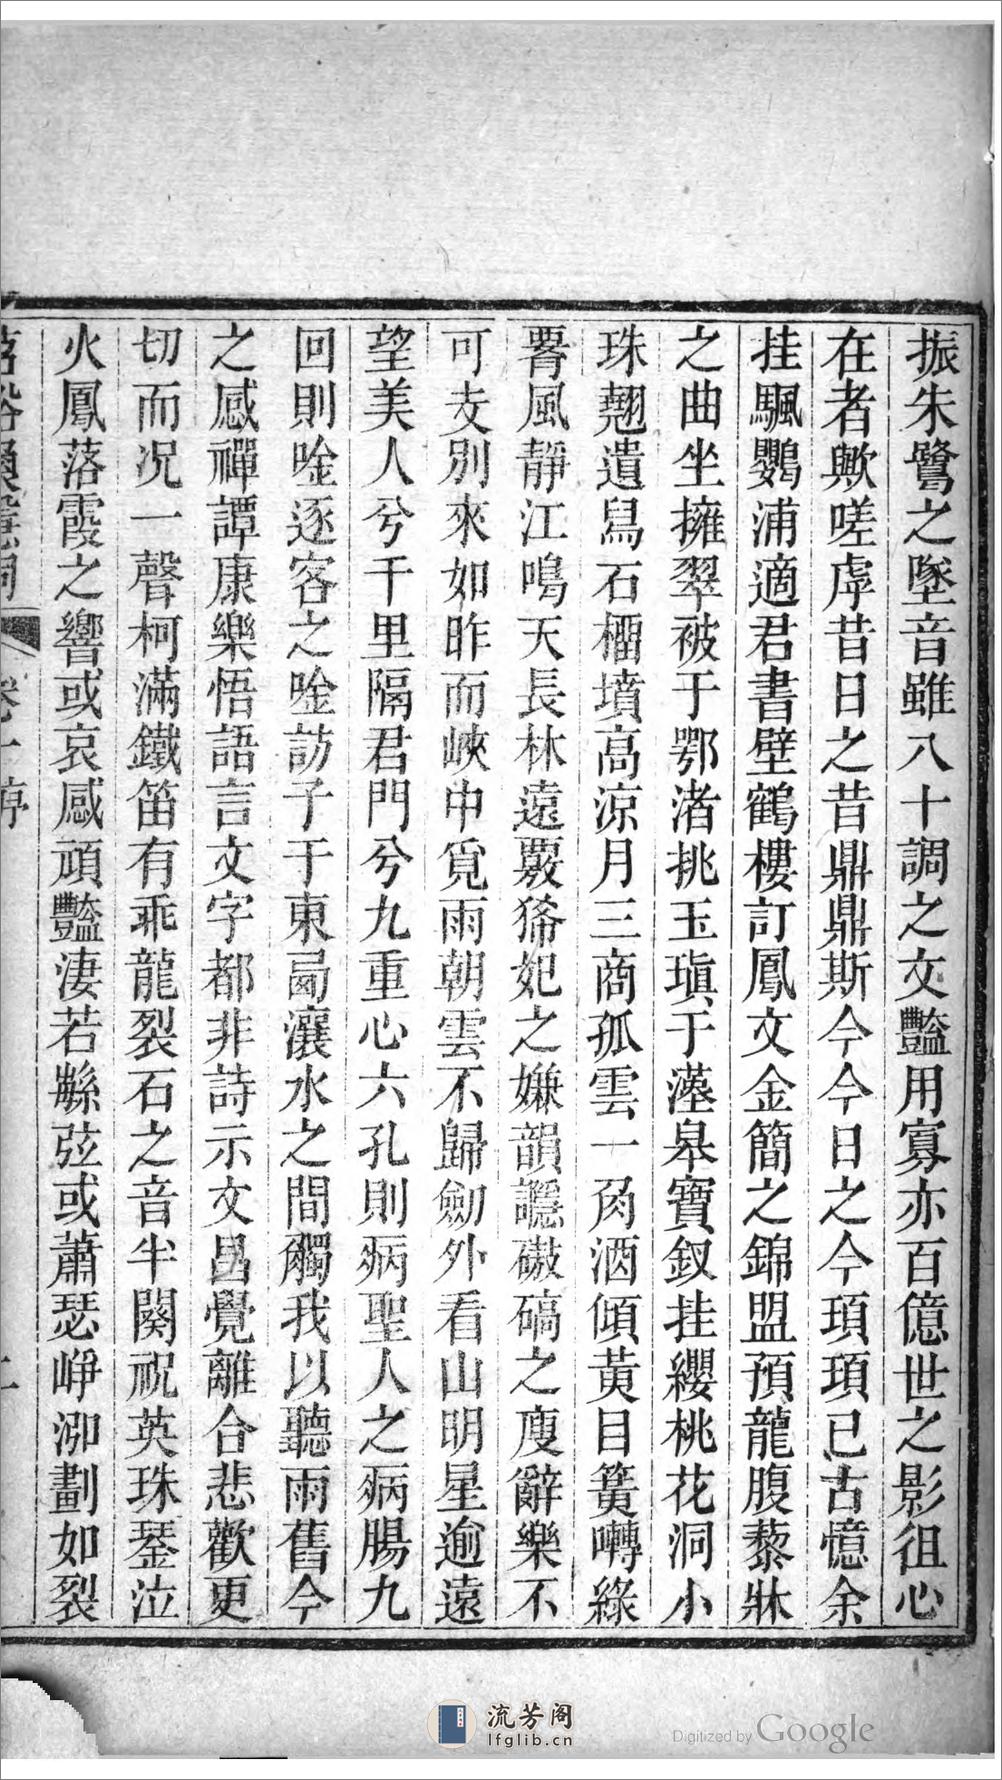 振朱鷺之墜音雖八十調之文豔用寡亦百億世之影徂心
在者歟嗟虖昔日之昔鼎鼎斯今今日之今頊頊已古憶余
挂颿鸚浦適君書壁鶴樓訂鳳文金簡之錦盟預龍腹藜牀
之曲坐擁翠被于鄂渚挑玉瑱于漢皋寶釵挂纓桃花洞小
珠翹遺舄石橊墳高涼月三商孤雲一肉酒傾黃目簧囀綠
脣風靜江鳴天長林遠覈狶妃之嫌韻讔磝碻之廋辭樂不
可支別來如昨而峽中覓雨朝雲不歸劒外看山明星逾遠
望美人兮千里隔君門兮九重心六孔則病聖人之病腸九
回則唫逐客之唫訪子于東屙瀼水之間觸我以聽雨舊今
之感禪譚康樂悟語言文字都非詩示文昌覺離合悲歡更
切而況一聲柯滿鐵笛有乖龍裂石之音半闋祝英珠琴泣
火鳳落霞之響或哀感頑豔淒若緜弦或蕭瑟崢泖劃如裂
卷一序